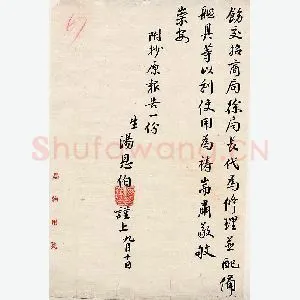 飭交招商局徐局長代為修理並配備
船具等以利使用為禱耑肅敬頌
崇安
附抄原報告一份
生湯恩伯謹上九月十日
Shufawang.CN